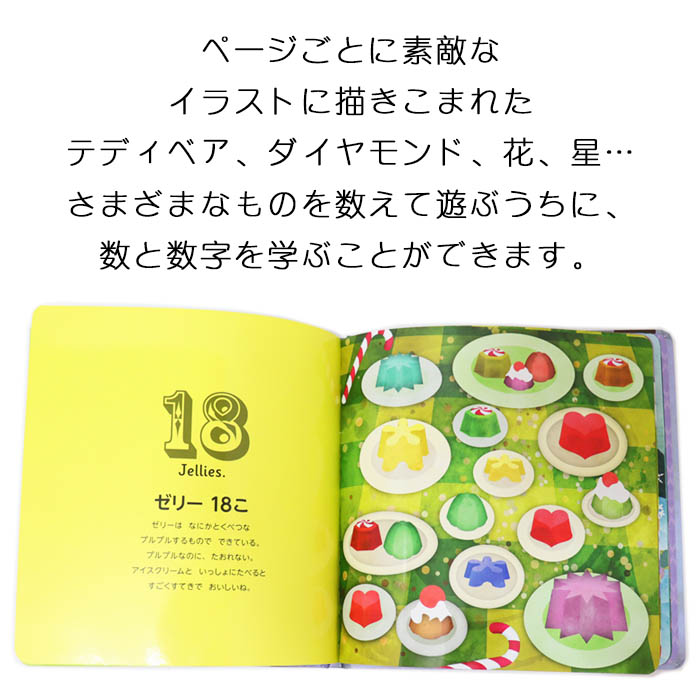 ページごとに素敵な
イラストに描きこまれた
テディベア、ダイヤモンド、花、星…
さまざまなものを数えて遊ぶうちに、
数と数字を学ぶことができます。
18
Jellies.
ゼリー 18こ
ゼリーは なにかとくべつな
プルプルするもので できている。
プルプルなのに、たおれない。
アイスクリームと いっしょにたべると
すごくすてきで おいしいね。